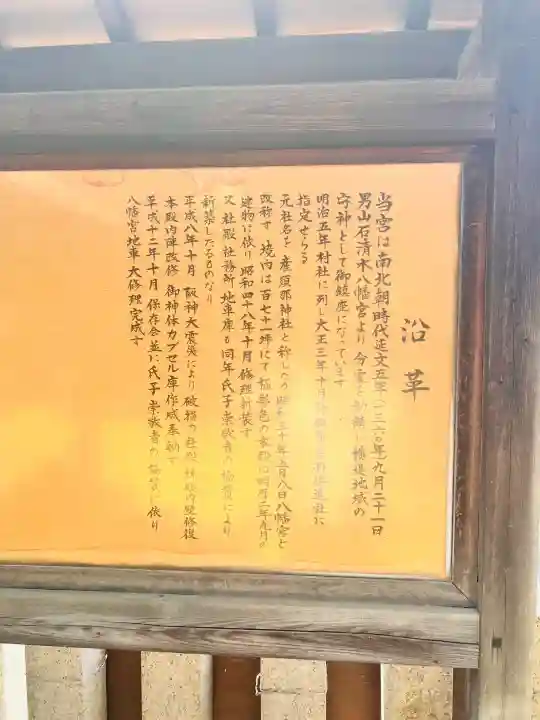 沿革
当宮は南北朝時代延文五年(一三六〇年)九月二十一日
男山石清水八幡宮より今霊を勧請し横堤地域の
守神として御鎮座になっています
明治五年村社に列し大正三年十月
指定せらる
元社名を産須那神社と称したが昭和三十年五月八日八幡宮と
改称す 境内は百七十一坪にて 明月二年九月の
建物に依り昭和四十八年十月修理新装す
又社殿社務所地車庫も同年氏子崇敬者の協賛により
新築したるものなり
平成八年十月 阪神大震災により破損の社殿 内壁修復
本殿内陣改修 御神体カプセル庫作成奉納す
平成十二年十月 保存会並に氏子崇敬者の協賛に依り
八幡宮地車大修理完成す